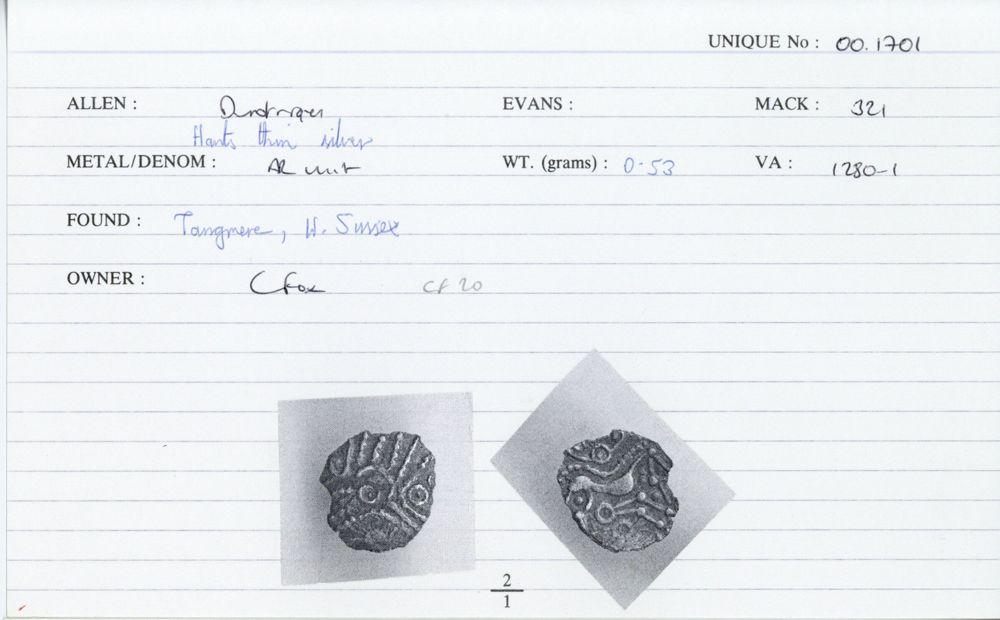 UNIQUE No : 00.1701
ALLEN : Durotriges EVANS : MACK : 321
Hants thin silver
METAL/DENOM : AR unit WT. (grams) : 0.53 VA : 1280-1
FOUND : Tangmere, W. Sussex
OWNER : C Fox CF 20
2
1